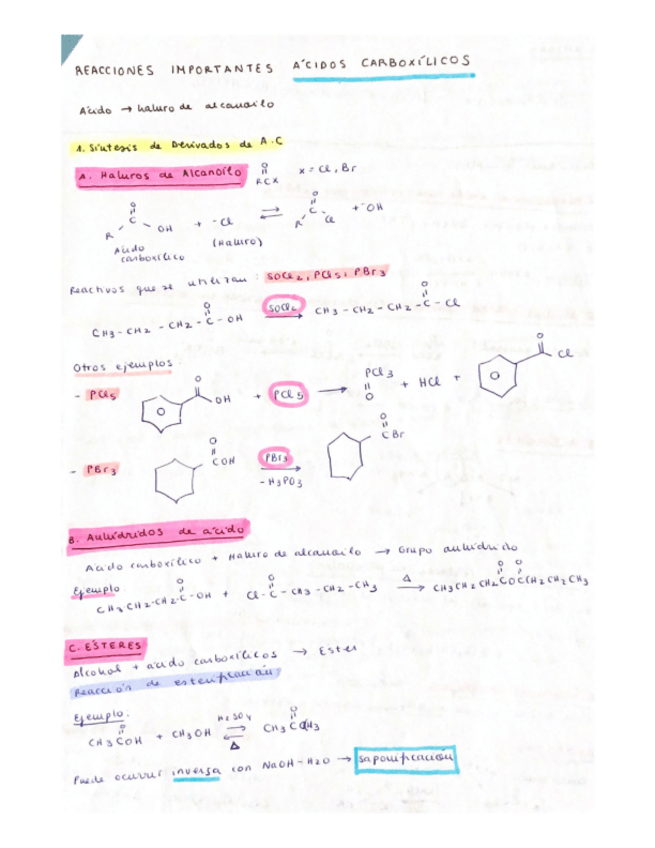 REACCIONES IMPORTANTES ÁCIDOS CARBOXÍLICOS
Ácido → haluro de alcanoilo
1. Síntesis de Derivados de A.C
A. Haluros de Alcanoilo O || RCX X = Cl, Br
R - C(=O) - OH + -Cl ⇌ R - C(=O) - Cl + -OH
Ácido carboxílico (Haluro)
Reactivos que se utilizan: SOCl2, PCl5, PBr3
CH3 - CH2 - CH2 - C(=O) - OH SOCl2 → CH3 - CH2 - CH2 - C(=O) - Cl
Otros ejemplos:
- PCl5 O OH + PCl5 → PCl3 || O + HCl + O Cl
- PBr3 O || COH PBr3 → - H3PO3 O || CBr
B. Anhídridos de ácido
Ácido carboxílico + Haluro de alcanoilo → Grupo anhídrido
Ejemplo
CH3CH2-CH2-C(=O)-OH + Cl-C(=O)-CH3-CH2-CH3 Δ → CH3CH2CH2C(=O)OC(=O)CH2CH2CH3
C. ÉSTERES
Alcohol + ácido carboxílicos → Ester
Reacción de esterificación
Ejemplo:
CH3C(=O)OH + CH3OH H2SO4 ⇌ Δ CH3C(=O)
Puede ocurrir inversa con NaOH-H2O → saponificación